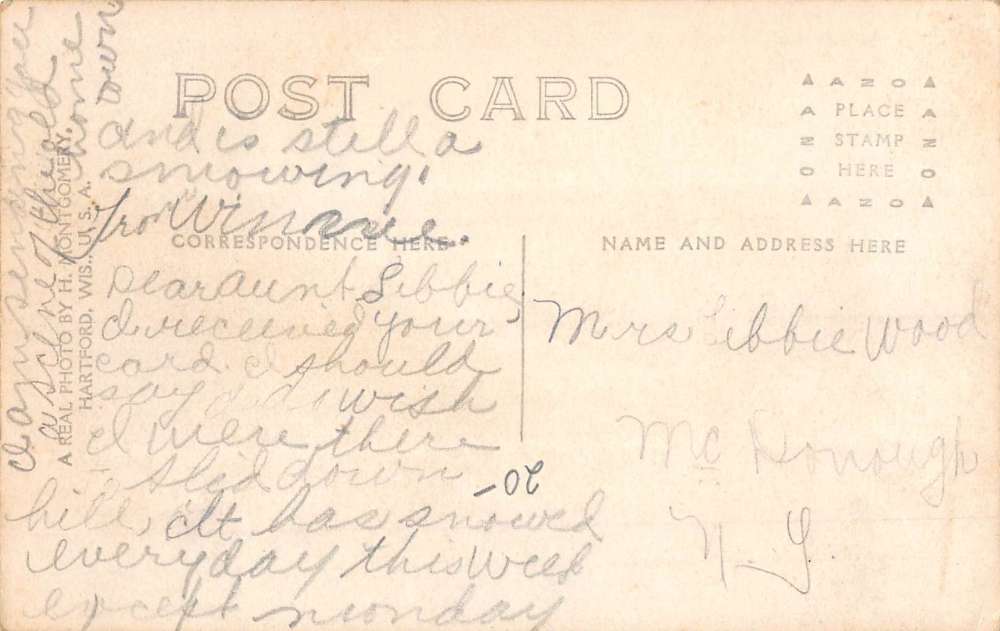 POST CARD
AZO
PLACE
STAMP
HERE
AZO
CORRESPONDENCE HERE
NAME AND ADDRESS HERE
A REAL PHOTO BY H. MONTGOMERY,
HARTFORD, WIS., U. S. A.
Dear Aunt Libbie,
I received your
card. I should
say I did wish
I were there
slid down
hill, It has snowed
everyday this week
except monday
and is still a
snowing.
From Winnie.
I am sending you
a scene of the old
home
town
20-
Mrs Libbie Wood
Mc Donough
N. Y.